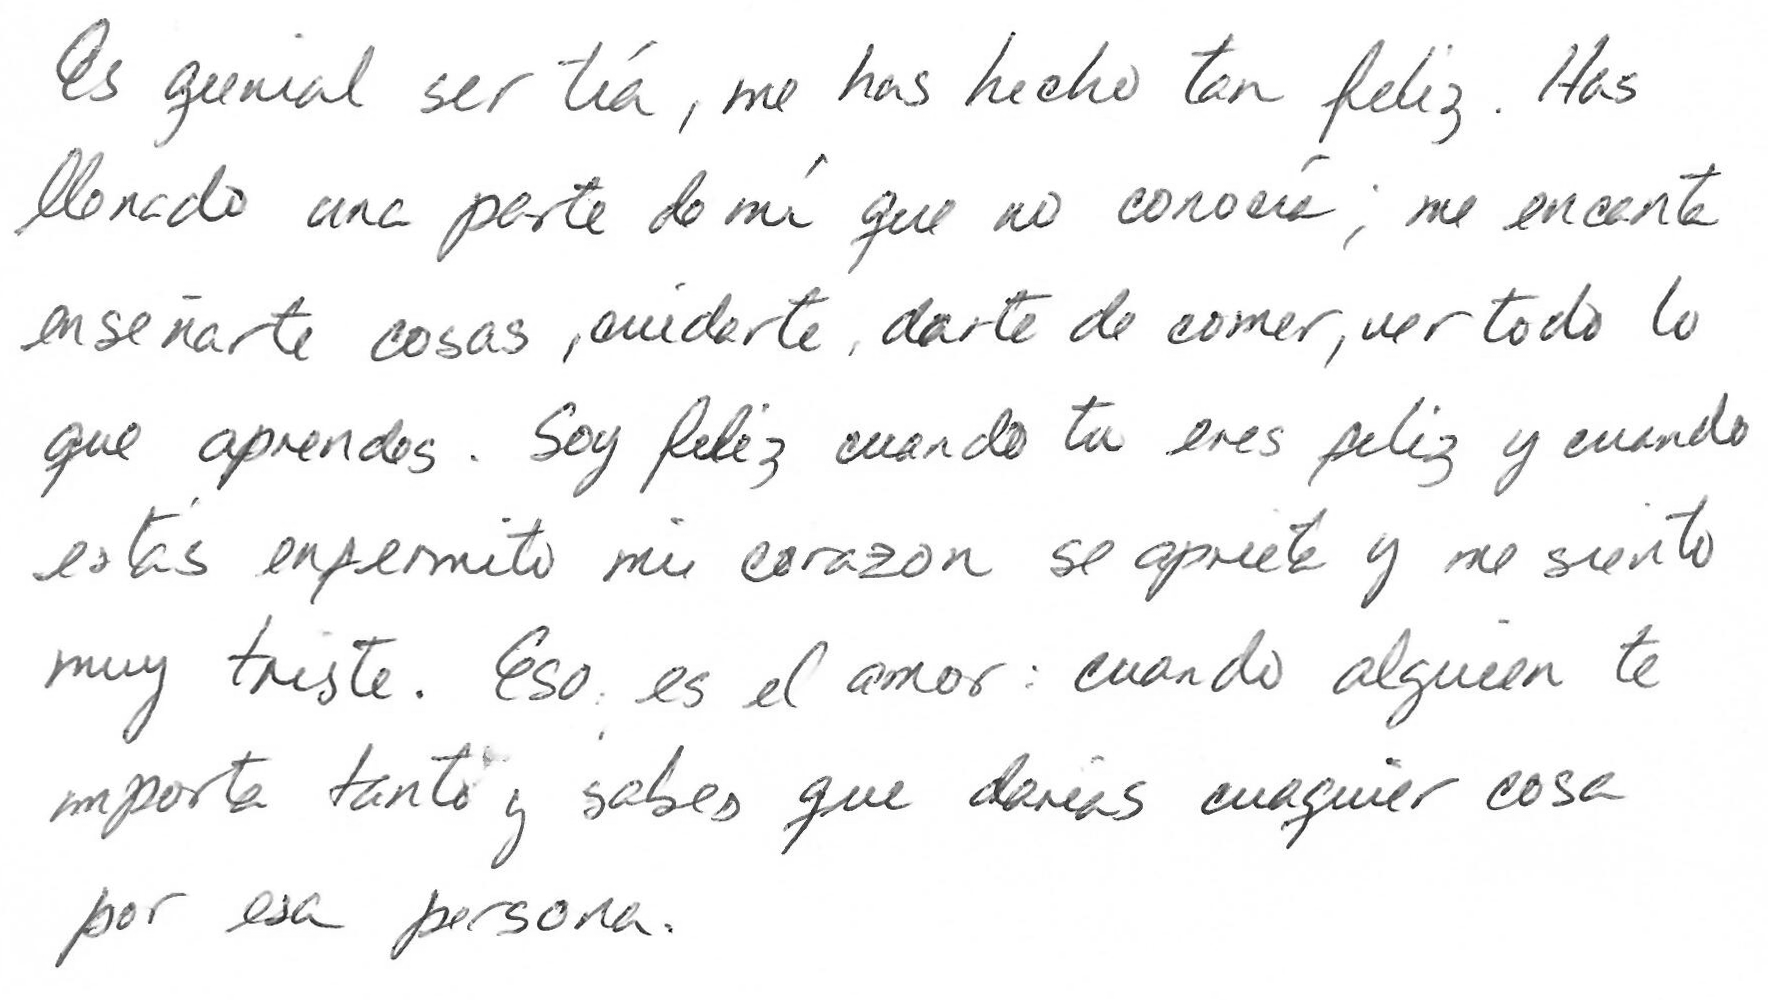 Es genial ser tía, me has hecho tan feliz. Has
llenado una parte de mí que no conocía; me encanta
enseñarte cosas, cuidarte, darte de comer, ver todo lo
que aprendes. Soy feliz cuando tu eres feliz y cuando
estás enfermito mi corazon se aprieta y me siento
muy triste. Eso es el amor: cuando alguien te
importa tanto y sabes que darías cuaquier cosa
por esa persona.